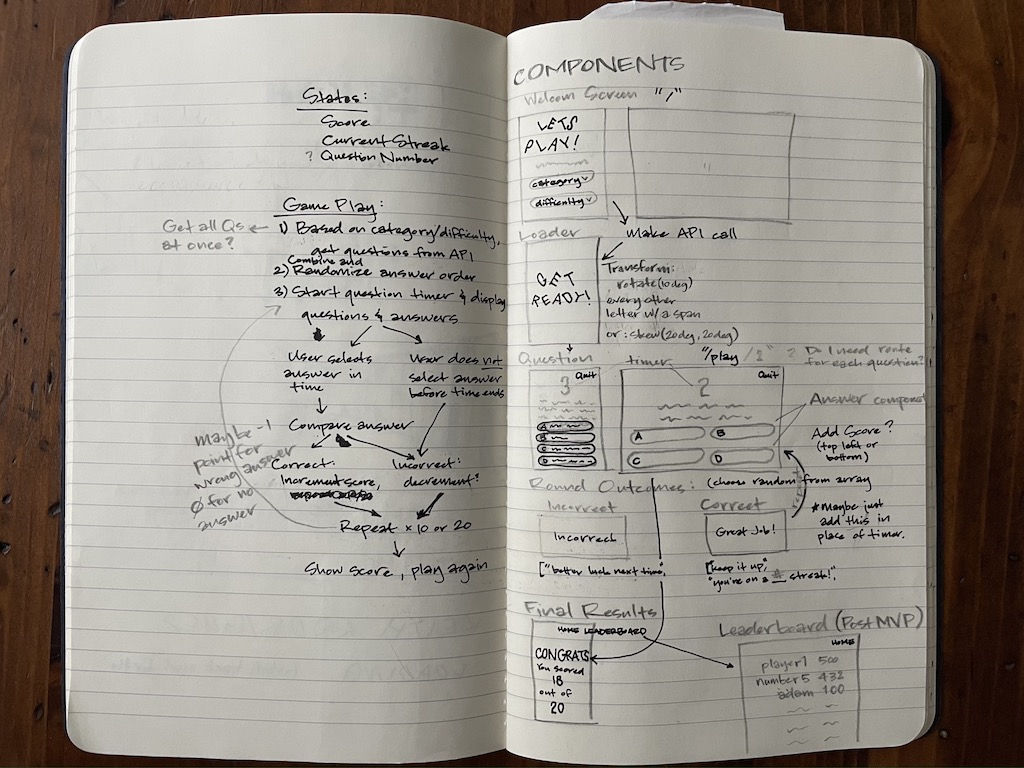 States:
Score
Current Streak
? Question Number
Game Play:
Get all Qs
at once?
1) Based on category/difficulty,
get questions from API
Combine and
2) Randomize answer order
3) Start question timer & display
questions & answers
User selects
answer in
time
User does not
select answer
before time ends
Compare answer
Correct:
Increment score,
Incorrect:
decrement?
maybe -1
point for
wrong answer
Ø for no
answer
Repeat x 10 or 20
Show score, play again
COMPONENTS
Welcom Screen "/"
LETS
PLAY!
category
difficulty
Make API call
Loader
GET
READY!
Transform:
rotate(10deg)
every other
letter w/ a span
or : skew(20deg, 20deg)
Question
timer
"/play/2"
? Do I need route
for each question?
Quit
3
A
B
C
D
Quit
2
A
B
C
D
Answer component
Add Score?
(top left or
bottom)
repeat
Round Outcomes: (choose random from array
Incorrect
Incorrect
["better luck next time",
Correct
Great Job!
["keep it up,"
"you're on a # streak!",
* Maybe just
add this in
place of timer.
Final Results
HOME LEADERBOARD
CONGRATS
You scored
18
out of
20
Leaderboard (Post MVP)
HOME
player1 500
number5 432
adam 100